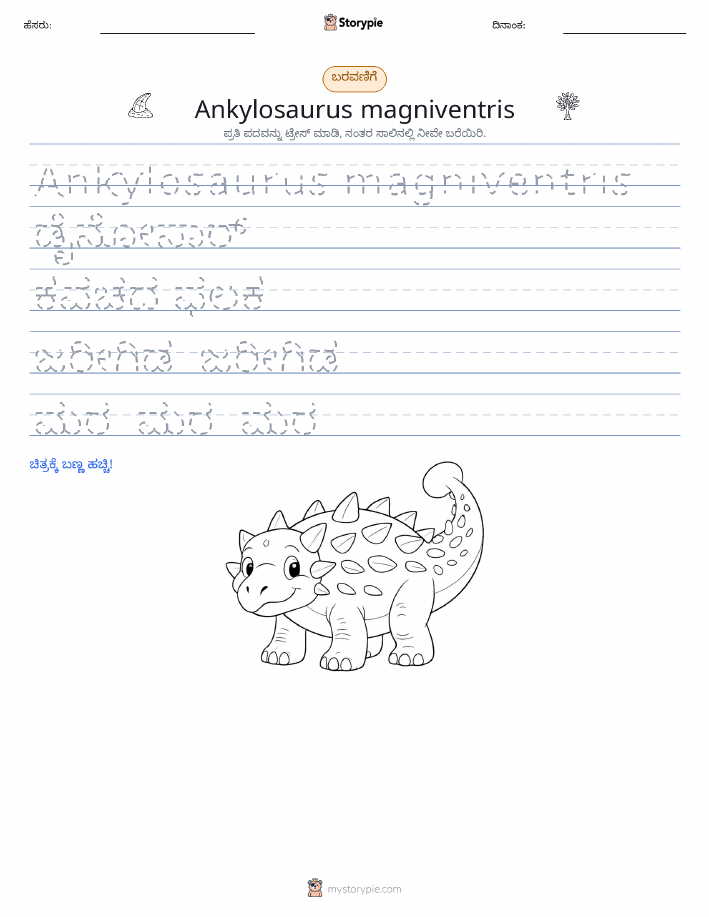 ಹೆಸರು:
Storypie
ದಿನಾಂಕ:
ಬರವಣಿಗೆ
Ankylosaurus magniventris
ಪ್ರತಿ ಪದವನ್ನು ಟ್ರೇಸ್ ಮಾಡಿ, ನಂತರ ಸಾಲಿನಲ್ಲಿ ನೀವೇ ಬರೆಯಿರಿ.
Ankylosaurus magniventris
ಡೈನೋಸಾರ್
ಕವಚದ ಫಲಕ
ಜರೀಗಿಡ ಜರೀಗಿಡ
ಮರ ಮರ ಮರ
ಚಿತ್ರಕ್ಕೆ ಬಣ್ಣ ಹಚ್ಚಿ!
mystorypie.com